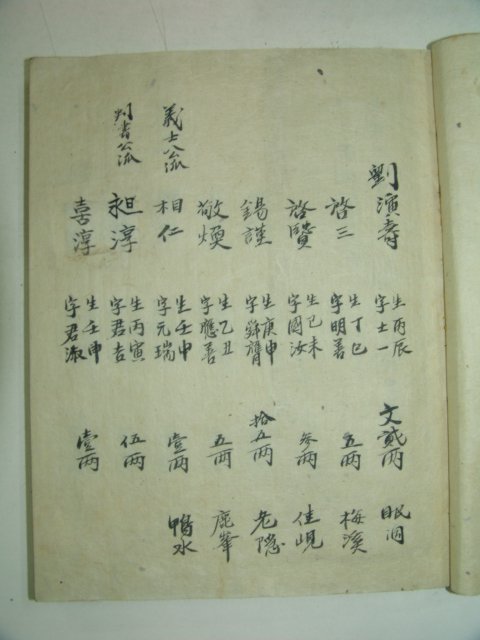 劉演壽 生丙辰 字士一 文貳兩 眠洞
啓三 生丁巳 字明善 五兩 梅溪
啓贇 生己未 字國汝 參兩 佳峴
錫謹 生庚申 字舜膺 拾五兩 老隱
敬煥 生乙丑 字應善 五兩 鹿峯
義士公派 相仁 生壬申 字元瑞 壹兩 鴨水
判書公派 昶淳 生丙寅 字君吉 伍兩
喜淳 生壬申 字君淑 壹兩